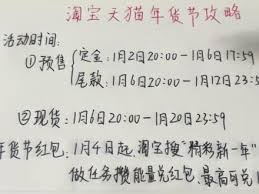 淘宝天猫年货节攻略
活动时间:
①预售 定金:1月2日20:00-1月6日17:59
尾款:1月6日20:00-1月12日23:5
②现货:1月6日20:00-1月20日23:59
年货节红包:1月4日起,淘宝搜"精彩新一年"
做任务攒能量兑红包,最高可兑1